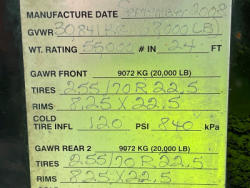 MANUFACTURE DATE 2008
GVWR 30841 KG LB)
WT. RATING 55000 # IN 24 FT
GAWR FRONT 9072 KG (20,000 LB)
TIRES 255/70 R 22.5
RIMS 8.25 X 22.5
COLD
TIRE INFL 120 PSI 840 kPa
GAWR REAR 2 9072 KG (20,000 LB)
TIRES 255/70 R 22.5
RIMS 8.25 X 22.5